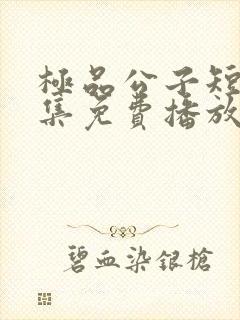 極品公子短
集免費播放
碧血染銀槍